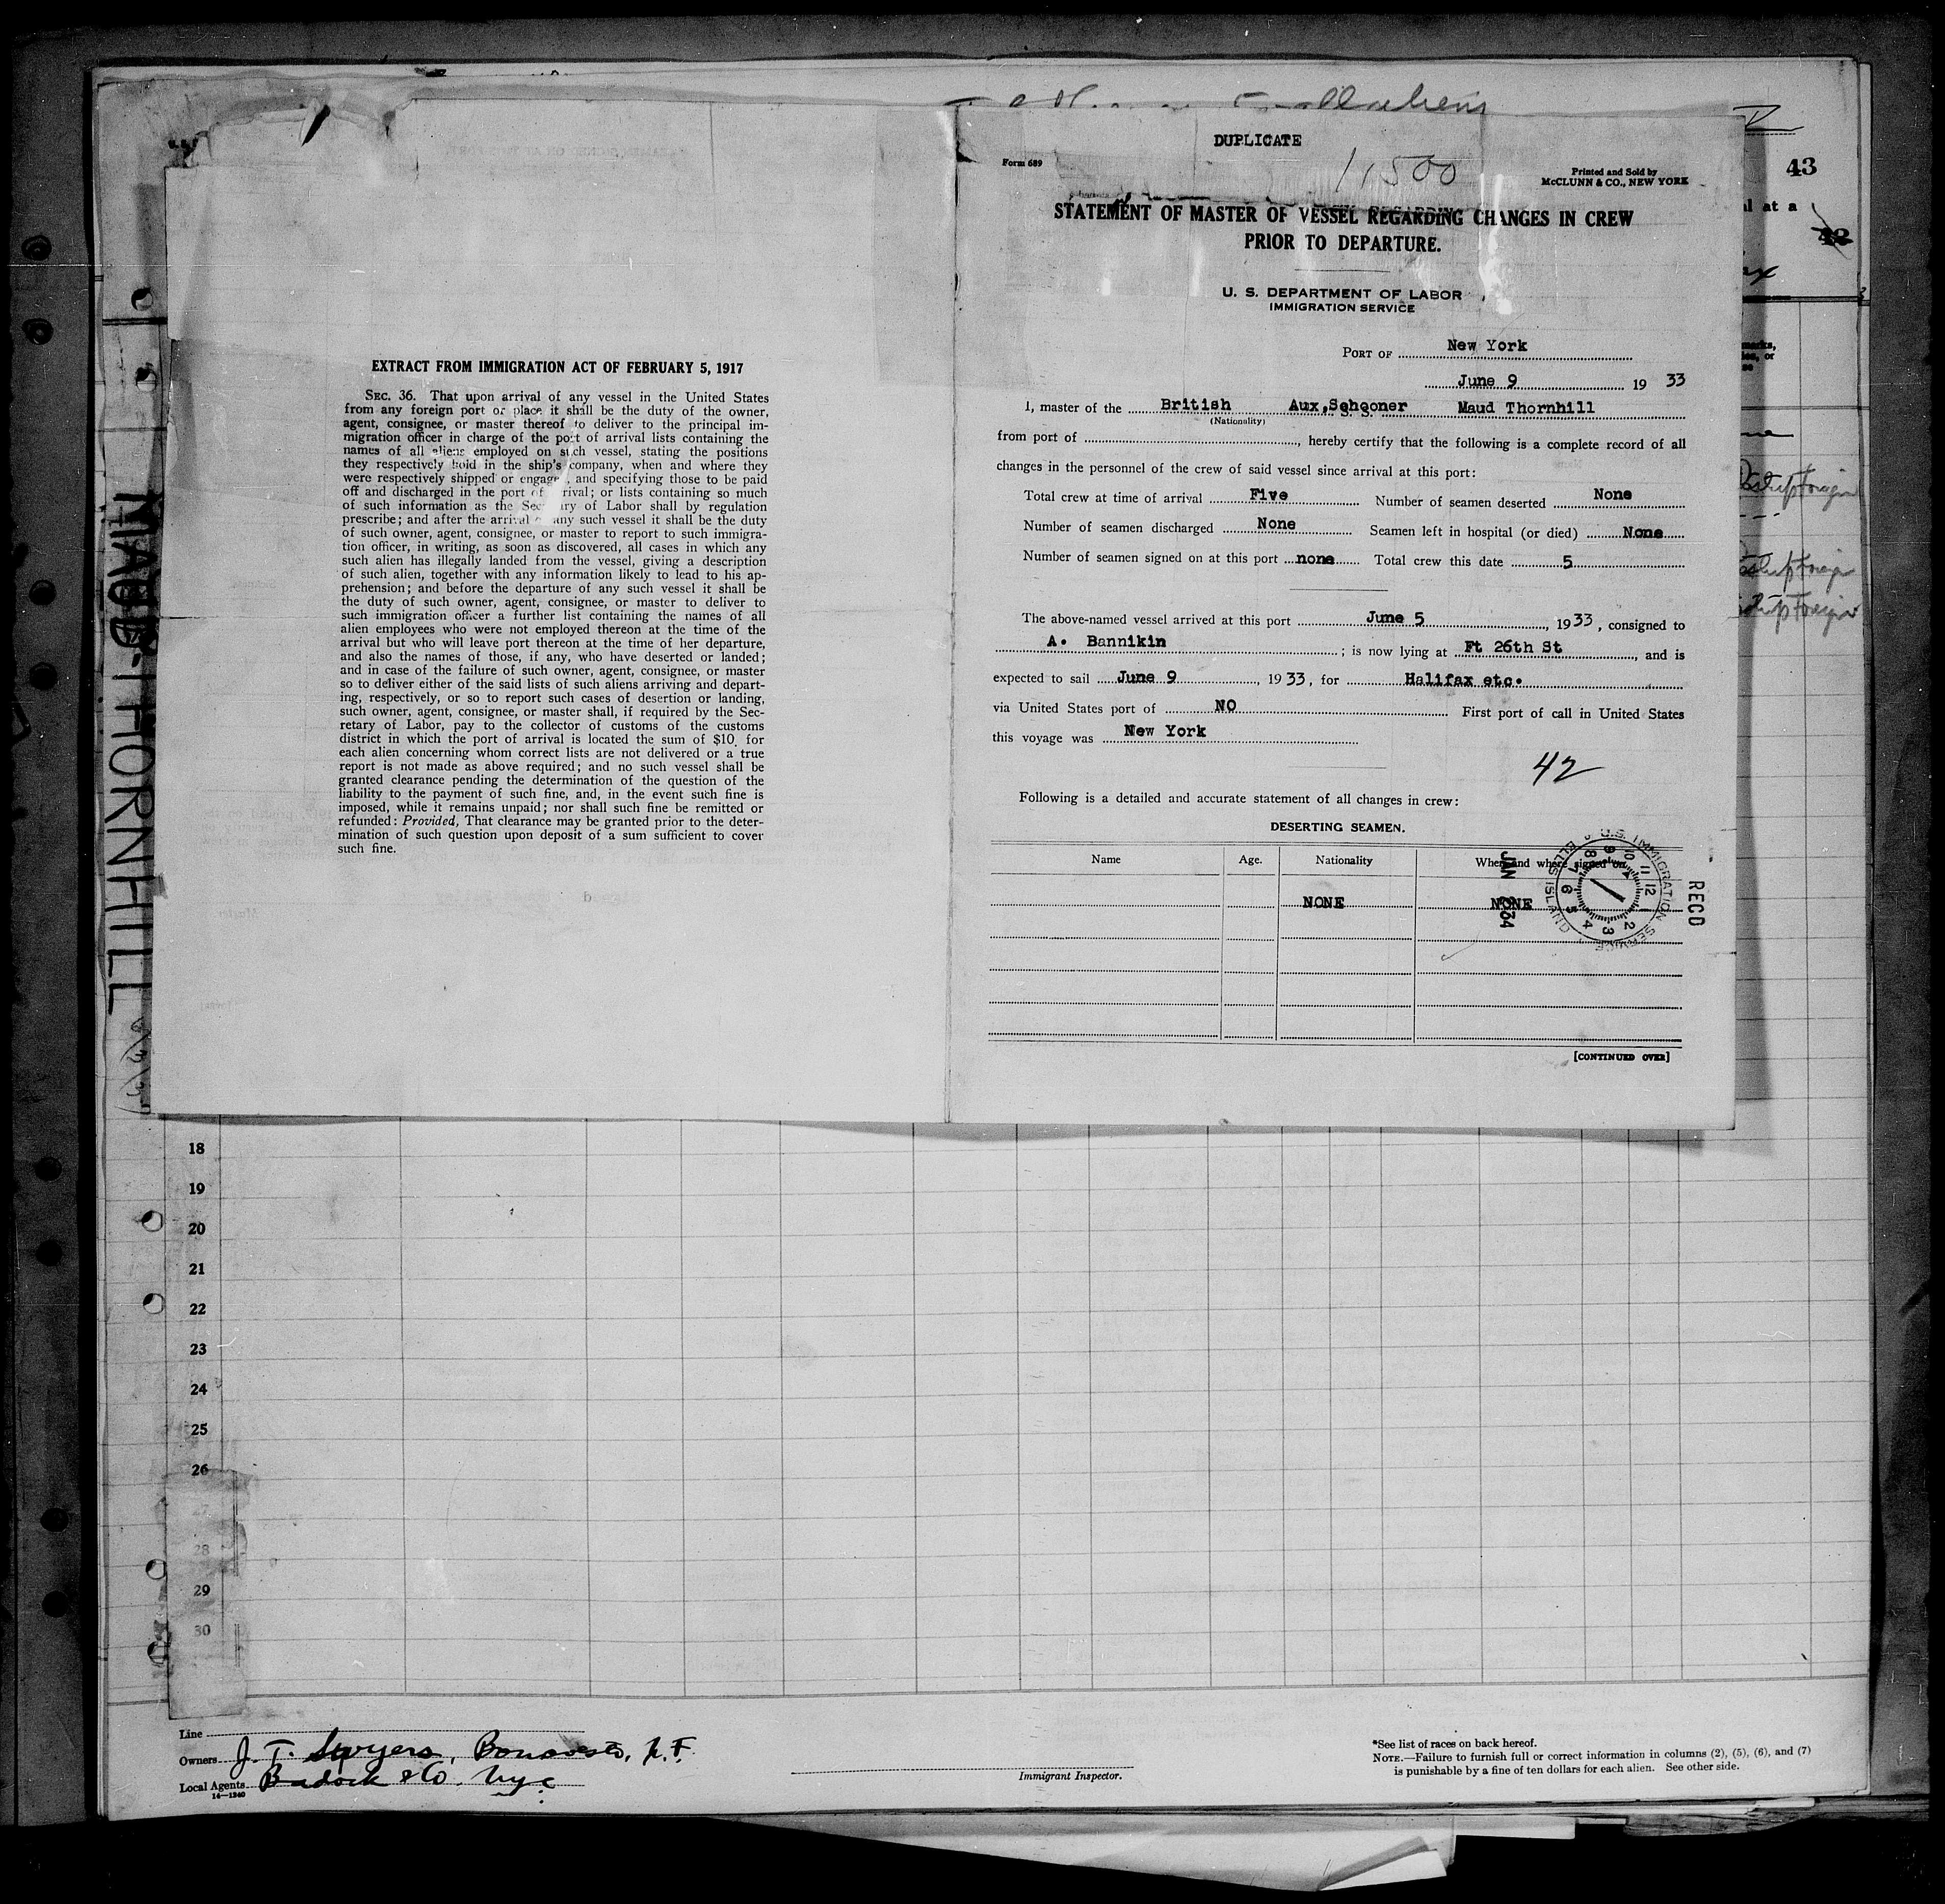 EXTRACT FROM IMMIGRATION ACT OF FEBRUARY 5, 1917
SEC. 36. That upon arrival of any vessel in the United States
from any foreign port or place it shall be the duty of the owner,
agent, consignee, or master thereof to deliver to the principal im-
migration officer in charge of the port of arrival lists containing the
names of all aliens employed on such vessel, stating the positions
they respectively hold in the ship's company, when and where they
were respectively shipped or engage, and specifying those to be paid
off and discharged in the port of rival; or lists containing so much
of such information as the Sec ry of Labor shall by regulation
prescribe; and after the arrival o any such vessel it shall be the duty
of such owner, agent, consignee, or master to report to such immigra-
tion officer, in writing, as soon as discovered, all cases in which any
such alien has illegally landed from the vessel, giving a description
of such alien, together with any information likely to lead to his ap-
prehension; and before the departure of any such vessel it shall be
the duty of such owner, agent, consignee, or master to deliver to
such immigration officer a further list containing the names of all
alien employees who were not employed thereon at the time of the
arrival but who will leave port thereon at the time of her departure,
and also the names of those, if any, who have deserted or landed;
and in case of the failure of such owner, agent, consignee, or master
so to deliver either of the said lists of such aliens arriving and depart-
ing, respectively, or so to report such cases of desertion or landing,
such owner, agent, consignee, or master shall, if required by the Sec-
retary of Labor, pay to the collector of customs of the customs
district in which the port of arrival is located the sum of $10. for
each alien concerning whom correct lists are not delivered or a true
report is not made as above required; and no such vessel shall be
granted clearance pending the determination of the question of the
liability to the payment of such fine, and, in the event such fine is
imposed, while it remains unpaid; nor shall such fine be remitted or
refunded: Provided, That clearance may be granted prior to the deter-
mination of such question upon deposit of a sum sufficient to cover
such fine.
MAUD THORNHILL
DUPLICATE
Form 689
11500
Printed and Sold by
McCLUNN & CO., NEW YORK
STATEMENT OF MASTER OF VESSEL REGARDING CHANGES IN CREW
PRIOR TO DEPARTURE.
U. S. DEPARTMENT OF LABOR
IMMIGRATION SERVICE
PORT OF New York
June 9 19 33
I, master of the British Aux, Schooner Maud Thornhill
(Nationality)
from port of , hereby certify that the following is a complete record of all
changes in the personnel of the crew of said vessel since arrival at this port:
Total crew at time of arrival Five Number of seamen deserted None
Number of seamen discharged None Seamen left in hospital (or died) None
Number of seamen signed on at this port none Total crew this date 5
The above-named vessel arrived at this port June 5, 1933, consigned to
A. Bannikin ; is now lying at Ft 26th St, and is
expected to sail June 9, 1933, for Halifax etc.
via United States port of NO First port of call in United States
this voyage was New York
42
Following is a detailed and accurate statement of all changes in crew:
DESERTING SEAMEN.
Name Age. Nationality When and where signed on
NONE NONE
[CONTINUED OVER]
U.S. IMMIGRATION SERVICE ELLIS ISLAND
RECD
43
al at a
42
18
19
20
21
22
23
24
25
26
27
28
29
30
Line
Owners J. T. Swyers, Bonavesta, N.F.
Local Agents Badock & Co. Nyc
14—1240
Immigrant Inspector.
*See list of races on back hereof.
NOTE.—Failure to furnish full or correct information in columns (2), (5), (6), and (7)
is punishable by a fine of ten dollars for each alien. See other side.